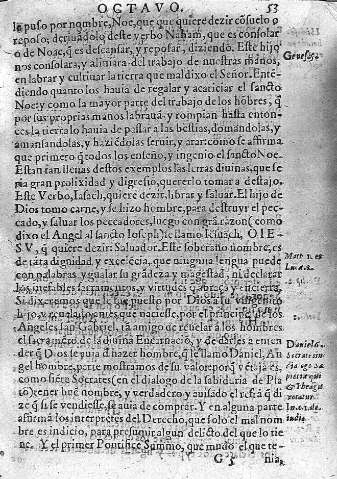 OCTAVO. 53
le puso por nombre, Noe, que quiere dezir cõsuelo o
reposo; deriuãdolo deste verbo Naham, que es consolar
o de Noac, q̃ es descansar, y reposar, diziendo. Este hijo
nos consolara, y aliuiara del trabajo de nuestras manos,
en labrar y cultiuar la tierra que maldixo el Señor. Entẽ-
diendo quanto los hauia de regalar y acariciar el sancto
Noe: y como la mayor parte del trabajo de los hõbres, q̃
por sus proprias manos labrauã, y rompian hasta enton-
ces la tierra lo hauia de pasar a las bestias, domandolas, y
amansandolas, y haziẽdolas seruir, y arar: como se affirma
que primero q̃ todos los enseño, y ingenio el sancto Noe.
Estan tan llenas destos exemplos las letras diuinas, que se
ria gran prolixidad y digresiõ, quererlo tomar a destajo.
Este Verbo, Iasach, quiere dezir, librar y saluar. El hijo de
Dios tomo carne, y se hizo hombre, para destruyr el pec-
cado, y saluar los peccadores, luego con grã razon (como
dixo el Angel al sancto Ioseph) le llamo Iesuach, O IE-
SV, q̃ quiere dezir: Saluador. Este soberano nombre, es
de tãta dignidad y excelẽcia, que ninguna lengua puede
con palabras ygualar su grãdeza y magestad, ni declarar
los inefables sacramẽtos, y virtudes q̃ abraça y encierra.
Si diremos que le fue puesto por Dios a su vnigenito
hijo, antes que nasciese, por el principe de los
Angeles san Gabriel, tã amigo de reuelar a los hombres
el sacramẽto de la diuina Encarnaciõ, y de darles a enten-
der q̃ Dios se auia d̃ hazer hombre, q̃ le llamo Daniel, An
gel hombre, parte mostramos de su valor
como hizo Socrates (en el dialogo de la sabiduria de Pla
tõ) tener buẽ nombre, y verdadero y auisado el refrã q̃ di
ze q̃ si se vendiesse, se auia de comprar. Y en alguna parte
affirmã los interpretes del Derecho, que solo el mal nom
bre es indicio, para presumir algun delicto del que lo tie
ne. Y el primer Pontifice Summo, que mudo el que te-
G 5 nia,
Genes. 5.
Matt. 1. et
Luc. 2.
Daniel.